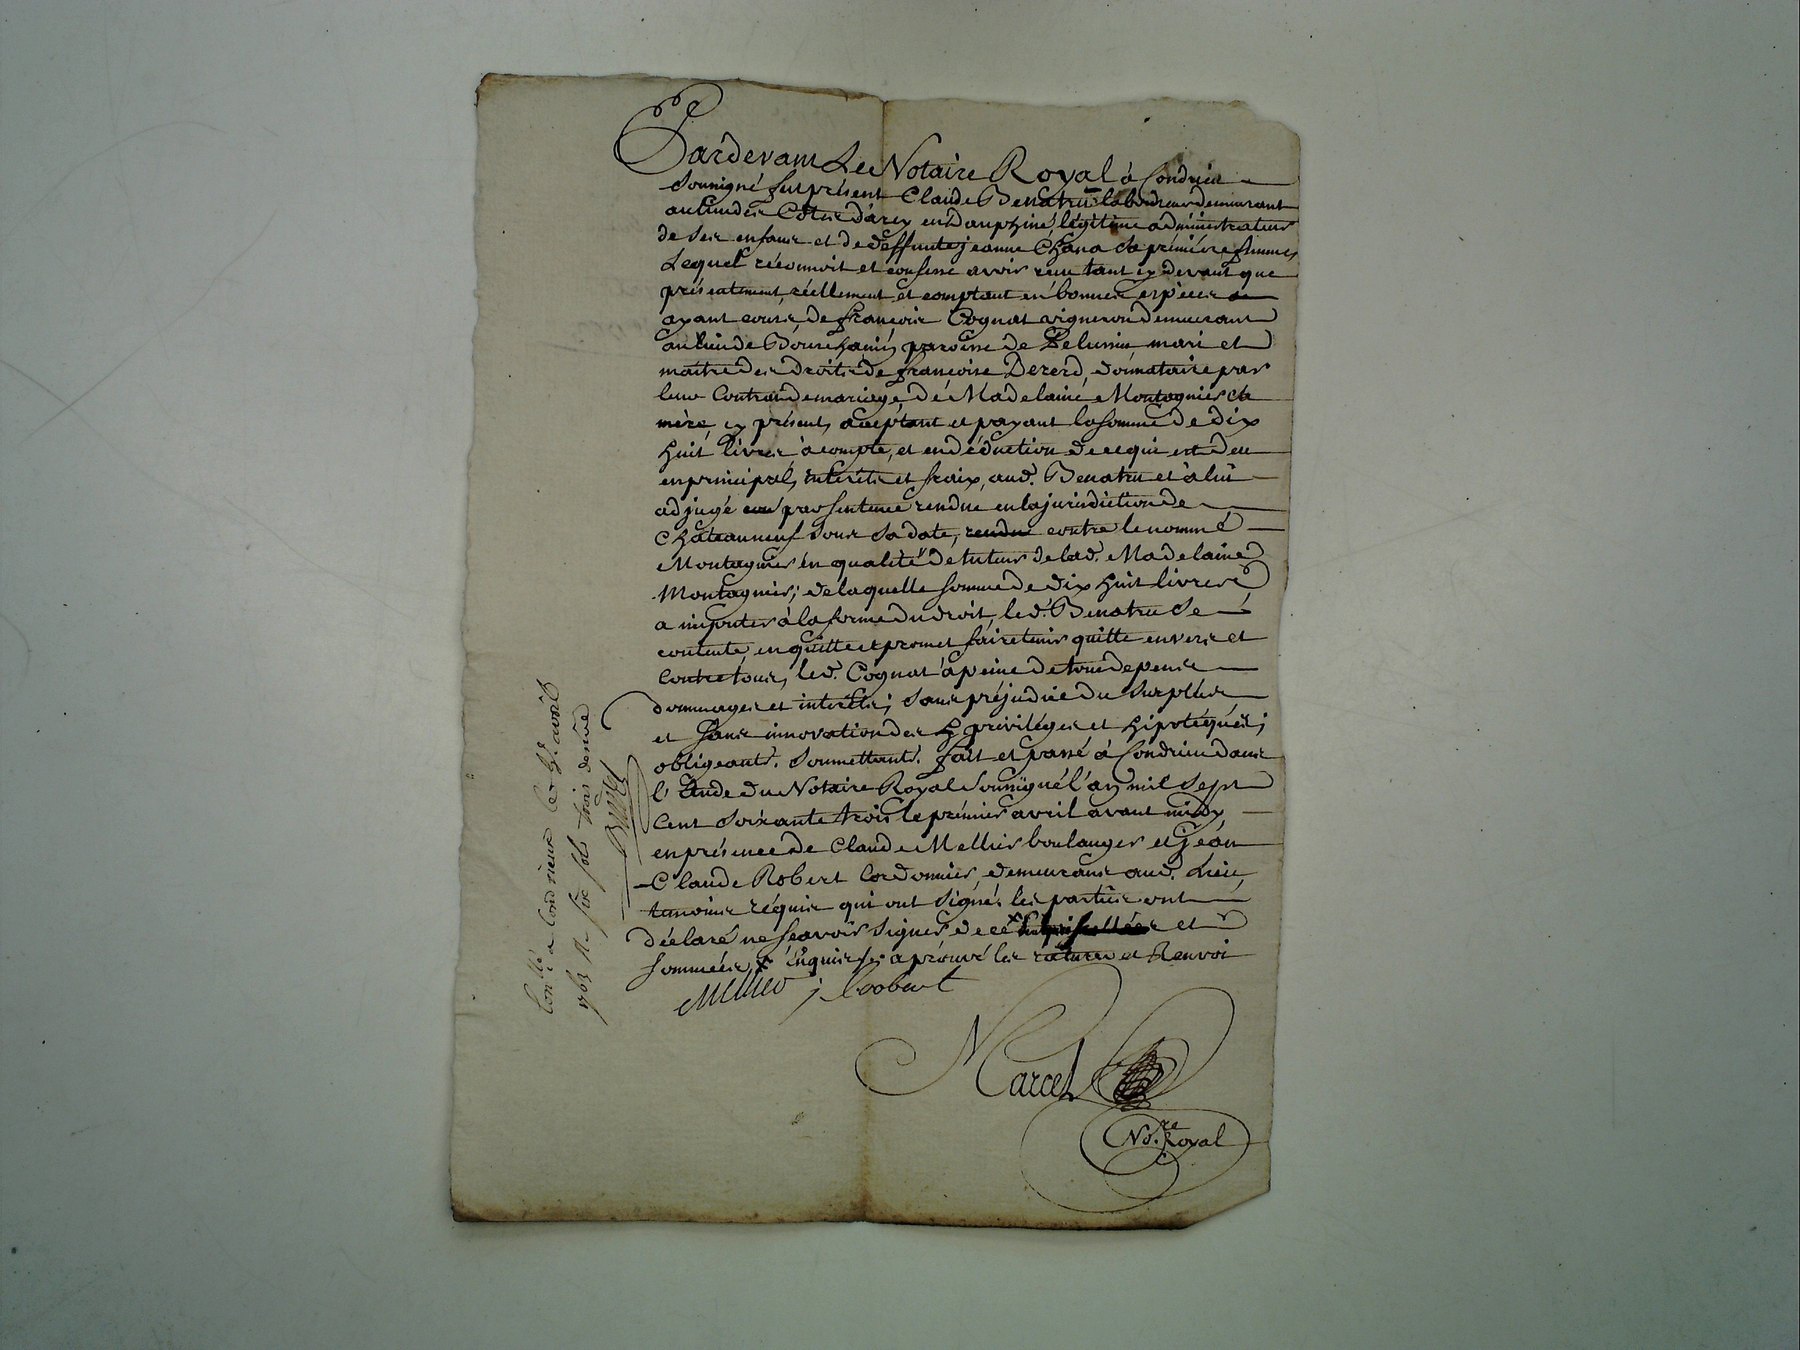 Pardevant Le Notaire Royal à Condrieu
Sousigné fut présent Claude Benatru laboureur demeurant
au lieu des Cotes d'arey en Dauphiné, légitime administrateur
de ses enfans et de deffunte jeanne Chana sa prémière femme,
Lequel réconnoit et confesse avoir reçu tant cy devant que
présentement, réellement et comptant en bonnes espèces
ayant cours, de françois Cognat vigneron demeurant
au lieu de Bourchanin, paroisse de Pelussin mari et
maitre des droits de françoise Dererd, donnataire par
leur Contrat de mariage de Madelaine Montagnier sa
mère, cy présent, acceptant et payant la somme de dix
huit livres, à compte, et en déduction de ce qui est deu
en principal, intérêts et fraix, aud. Benatru et à lui
adjugé par sentence rendue en la jurisdiction de
Châteauneuf sous sa date, rendue contre le nommé
Montagnier en qualité de tuteur de lad. Madelaine
Montagnier; de laquelle somme de dix huit livres
a imputer à la forme du droit, led. Benatru se
contente, en quitte et promet faire tenir quitte envers et
contre tous, led. Cognat à peine de tous depens
dommages et intérêts; sans préjudice du surplus
et sans innovation des privilèges et hipotéques;
obligeants. soumettants. fait et passé à Condrieu dans
l'Etude du Notaire Royal sousigné l'an mil sept
cent soixante trois le prémier avril avant midy,
en présence de Claude Mellier boulanger et Jean
Claude Robert Cordonnier, demeurans aud. Lieu,
temoins réquis qui ont signé. les parties ont
déclaré ne sçavoir signer de ce et
sommées, x enquises aprouvé les ratures et Renvoi
Mellier j C Robert
Marcel
No.re Royal
Con.llé a Condrieux le avril
1763 R. six sols trois deniers